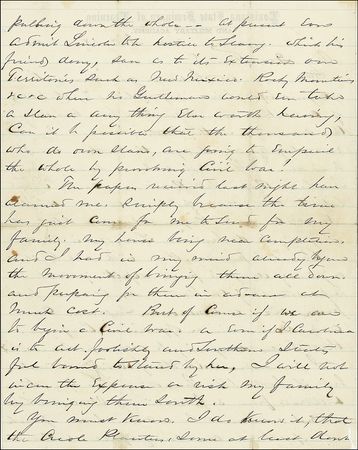 pulling down the whole - at present even
admit Lincoln to be hostile to Slavery which his
friends deny, save as to its extension over
Territories such as New Mexico Rocky Mountains
&c &c when no Gentleman would ever take
a slave or any thing Else worth having,
Can it be possible that the thousands
who do own slaves, are going to Emperil
the whole by provoking Civil War.
The papers received last night have
alarmed me. simply because the time
has just come for me to send for my
family. My house being near completion
and I had in my mind already begun
the movement of bringing them all down
and preparing for them in advance at
much cost. But of Course if we are
to begin a Civil War. or even if S. Carolina
is to act foolishly and Southern States
feel bound to stand by her, I will not
incur the Expense or risk my family
by bringing them South.
You must know. I do know it, that
the Creole Planters, some at least don't